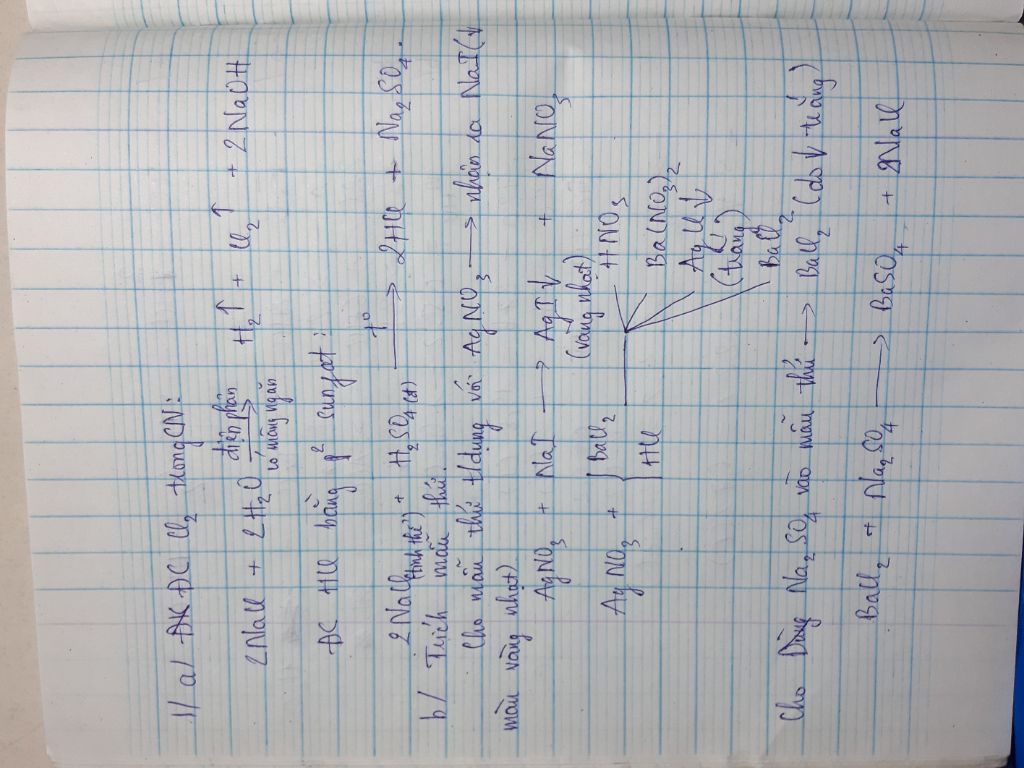 1/ a/ ĐC Cl2 trong CN:
2NaCl + 2H2O điện phân có màng ngăn → H2↑ + Cl2↑ + 2NaOH
ĐC HCl bằng p² sunfat:
2NaCl (tinh thể) + H2SO4(đ) t° → 2HCl + Na2SO4.
b/ Trích mẫu thử.
Cho mẫu thử t/dụng với AgNO3 → nhận ra NaI (↓
màu vàng nhạt)
AgNO3 + NaI → AgI↓ (vàng nhạt) + NaNO3
AgNO3 + { BaCl2 HCl
HNO3
Ba(NO3)2
AgCl↓ (trắng)
BaCl2
Cho Dùng Na2SO4 vào mẫu thử → BaCl2 (do ↓ trắng)
BaCl2 + Na2SO4 → BaSO4 + 2NaCl